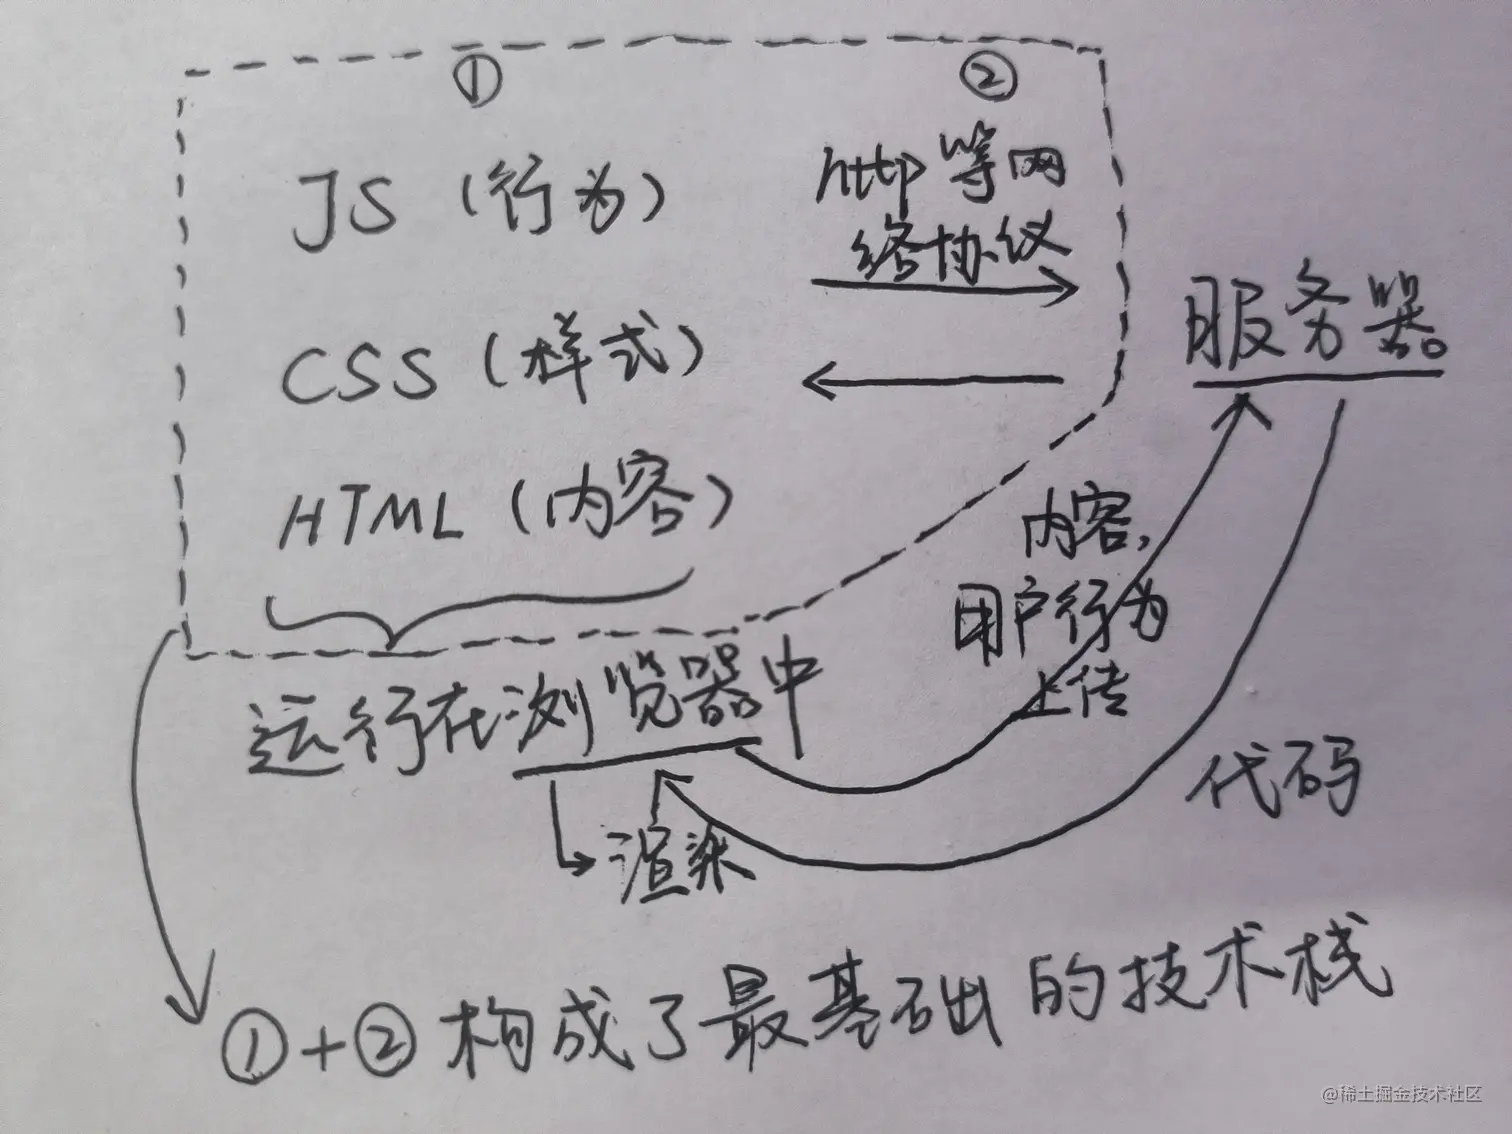 ① ②
JS（行为）
http等网
络协议
CSS（样式）
服务器
HTML（内容）
内容，
用户行为
上传
运行在浏览器中
代码
渲染
①+②构成了最基础的技术栈
@稀土掘金技术社区